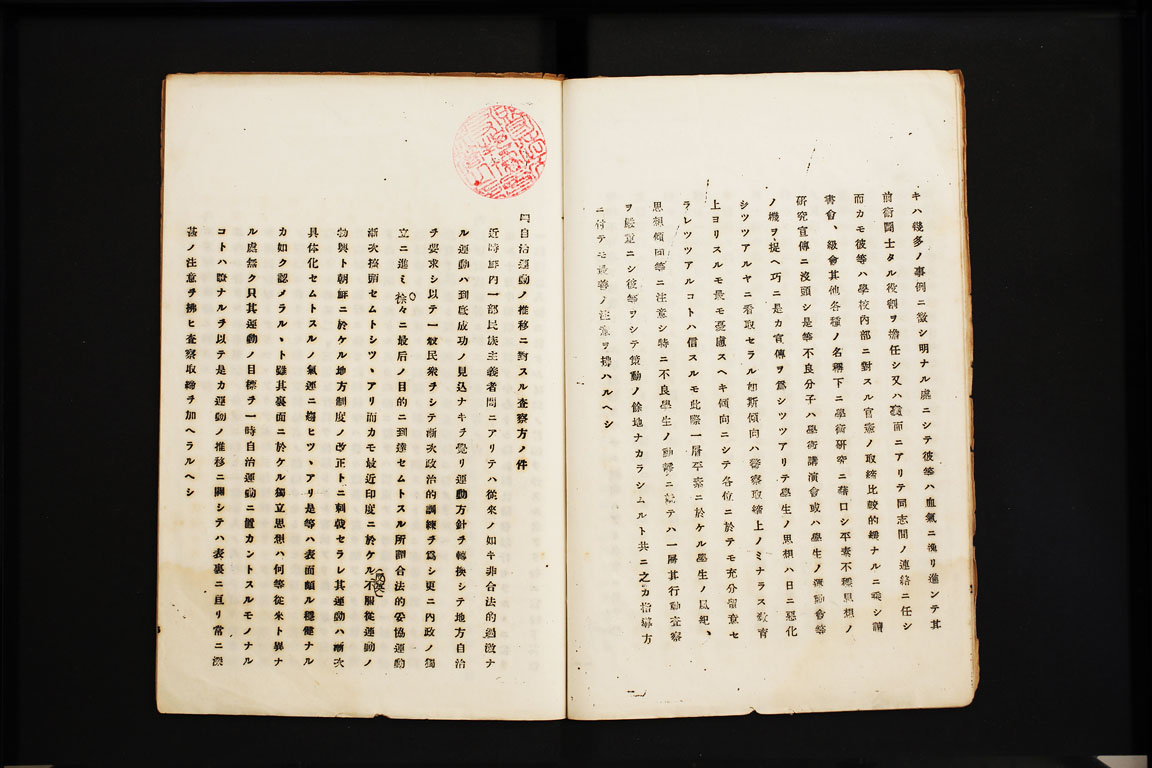 キハ幾多ノ事例ニ徴シ明ナル處ニシテ彼等ハ血氣ニ漲リ進ンテ其
前衛鬪士タル役割ヲ擔任シ又ハ裏面ニアリテ同志間ノ連絡ニ任シ
而カモ彼等ハ學校内部ニ對スル官憲ノ取締比較的緩ナルニ乘シ讀
書會、級會其他各種ノ名稱下ニ學術研究ニ藉口シ平素不穩思想ノ
研究宣傳ニ沒頭シ是等不良分子ハ學術講演會或ハ學生ノ運動會等
ノ機ヲ捉ヘ巧ニ是カ宣傳ヲ爲シツツアリテ學生ノ思想ハ日ニ惡化
シツツアルヤニ看取セラル如斯傾向ハ警察取締上ノミナラス敎育
上ヨリスルモ最モ憂慮スヘキ傾向ニシテ各位ニ於テモ充分留意セ
ラレツツアルコトハ信スルモ此際一層平素ニ於ケル學生ノ風紀、
思想傾向等ニ注意シ特ニ不良學生ノ動靜ニ就テハ一層其行動査察
ヲ嚴重ニシ彼等ヲシテ策動ノ餘地ナカラシムルト共ニ之カ指導方
ニ付テモ最善ノ注意ヲ拂ハルヘシ
自治運動ノ推移ニ對スル査察方ノ件
近時鮮内一部民族主義者間ニアリテハ從來ノ如キ非合法的過激ナ
ル運動ハ到底成功ノ見込ナキヲ覺リ運動方針ヲ轉換シテ地方自治
ヲ要求シ以テ一般民衆ヲシテ漸次政治的訓練ヲ爲シ更ニ内政ノ獨
立ニ進ミ徐々ニ最后ノ目的ニ到達セムトスル所謂合法的妥協運動
漸次擡頭セムトシツヽアリ而カモ最近印度ニ於ケル不服從運動ノ
勃興ト朝鮮ニ於ケル地方制度ノ改正トニ刺戟セラレ其運動ハ漸次
具体化セムトスルノ氣運ニ趨ヒツヽアリ是等ハ表面頗ル穩健ナル
カ如ク認メラルヽト雖其裏面ニ於ケル獨立思想ハ何等從來ト異ナ
ル處無ク只其運動ノ目標ヲ一時自治運動ニ置カントスルモノナル
コトハ瞭ナルヲ以テ是カ運動ノ推移ニ關シテハ表裏ニ亘リ常ニ深
甚ノ注意ヲ拂ヒ査察取締ヲ加ヘラルヘシ